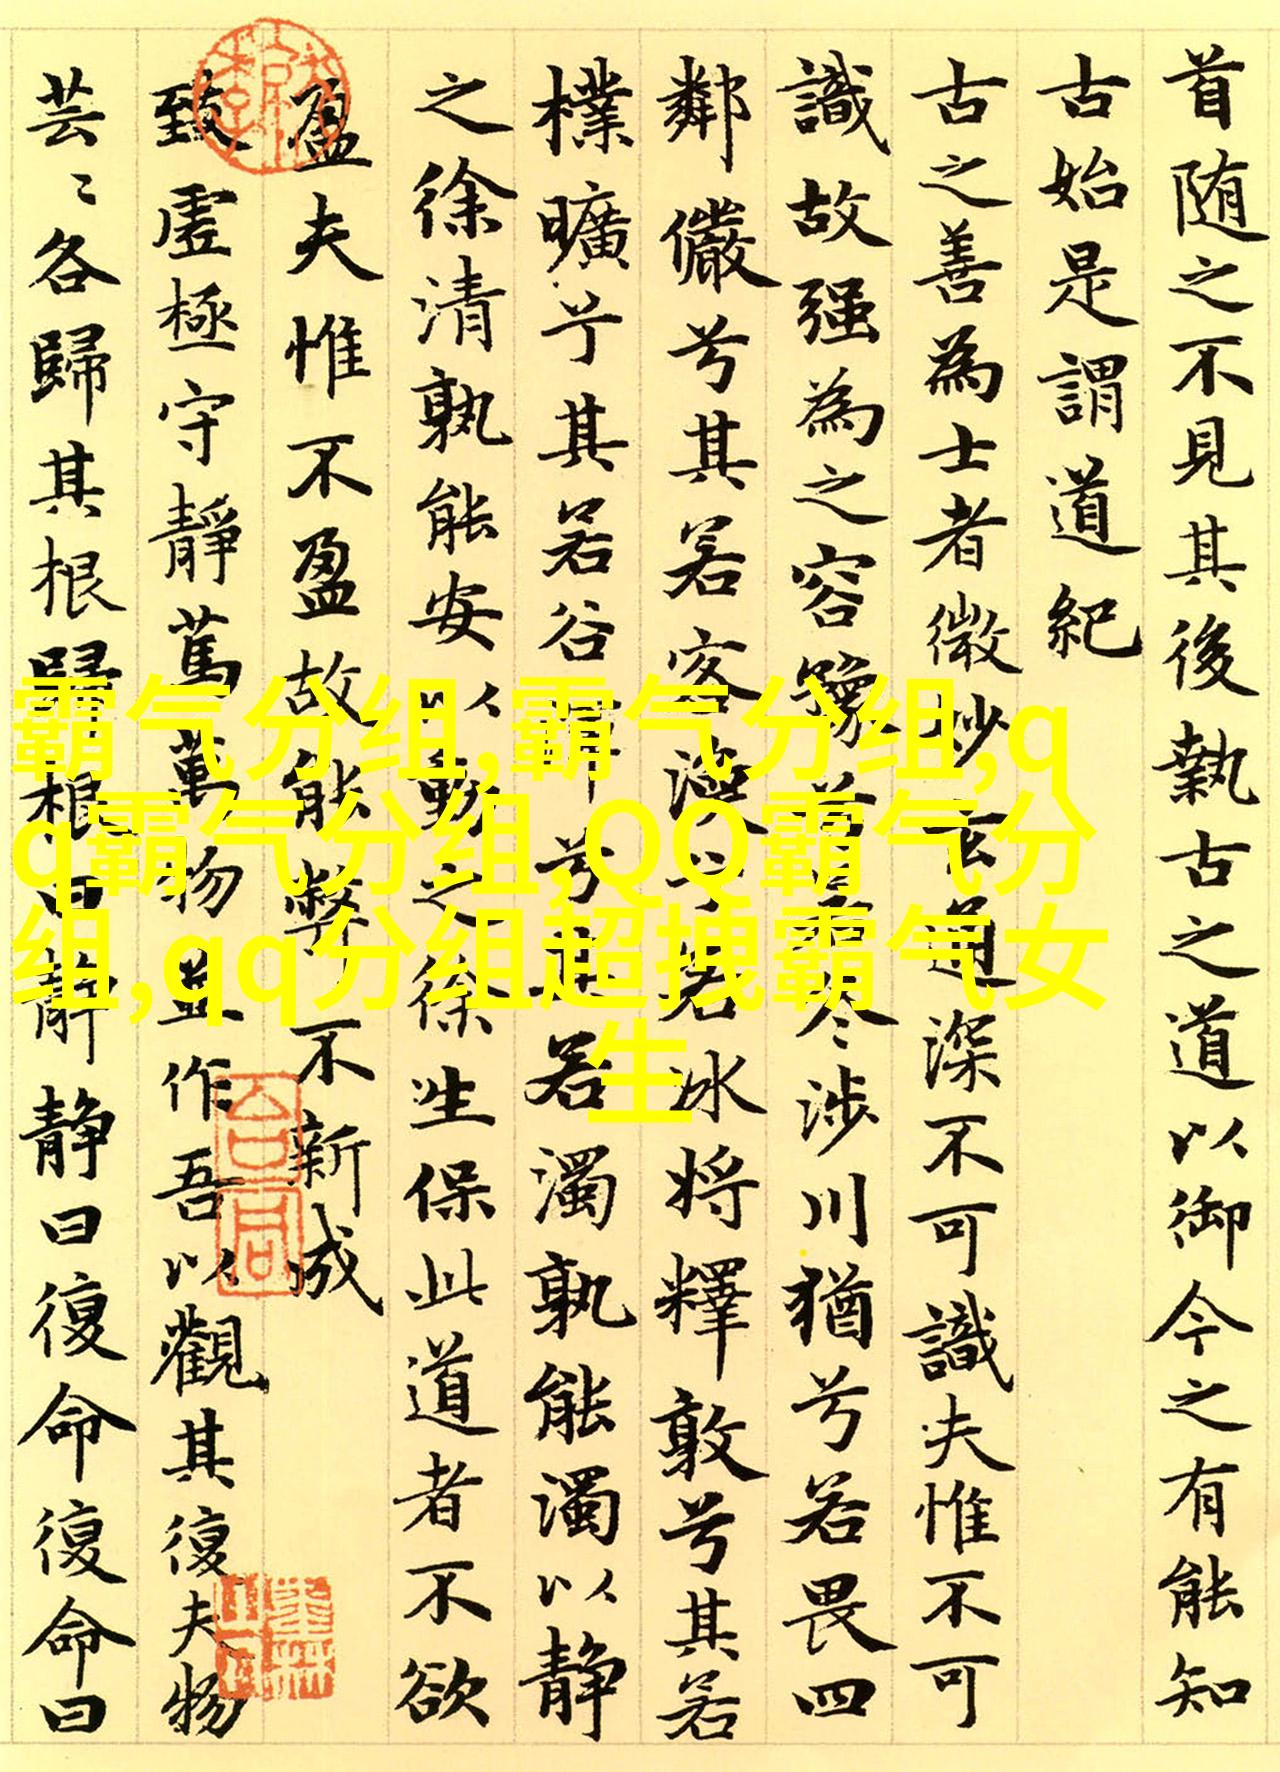 首随之不見其後執古之道以御今之有能知
古始是謂道紀
古之善為士者微妙玄通深不可識夫惟不可
識故强為之容豫兮若冬涉川猶兮若畏四
鄰儼兮其若客渙兮若冰將釋敦兮其若
樸曠兮其若谷渾兮其若濁孰能濁以静
之徐清孰能安以動之徐生保此道者不欲
盈夫惟不盈故能弊不新成
致虛極守靜篤萬物並作吾以觀其復夫物
芸〻各歸其根歸根曰靜静曰復命復命曰
霸气分组,霸气分组,q
q霸气分组,QQ霸气分
组,qq分组超拽霸气女
生